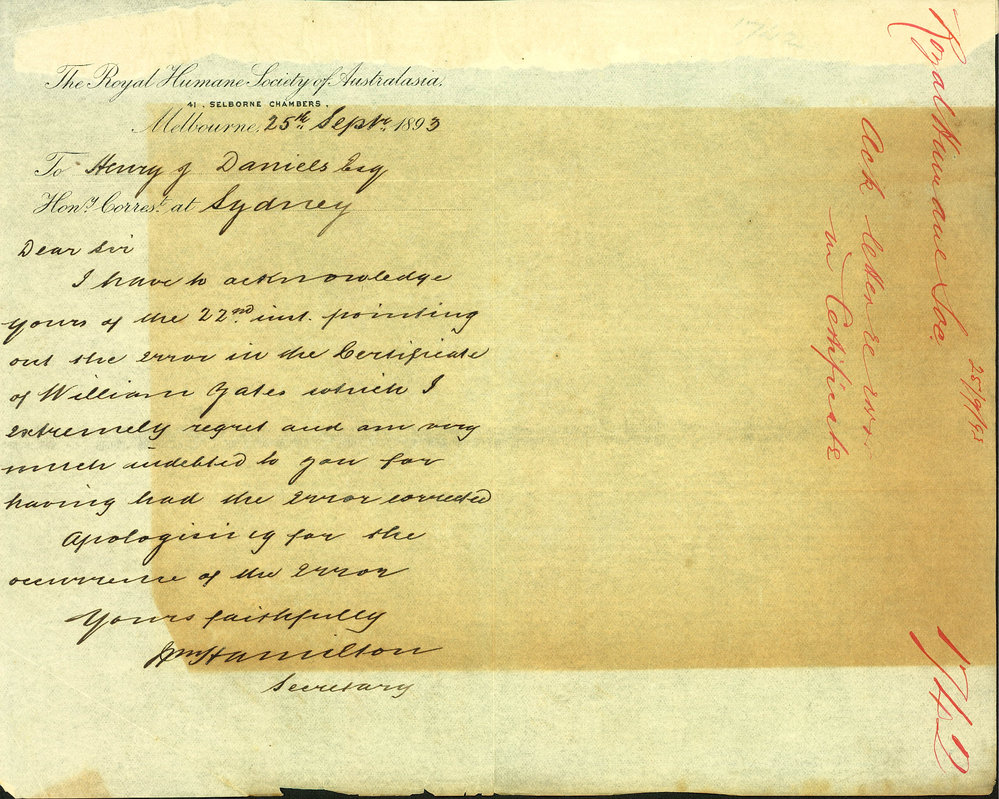 The Royal Humane Society of Australasia.
41, SELBORNE CHAMBERS,
Melbourne, 25th Septr. 1893
To Henry J Daniels Esq
Hony. Correst. at Sydney
Dear Sir
I have to acknowledge
yours of the 22nd inst. pointing
out the error in the Certificate
of William Yates which I
extremely regret and am very
much indebted to you for
having had the error corrected
Apologising for the
occurrence of the error
Yours faithfully
Wm Hamilton
Secretary
Royal Humane Soc.
25/9/93
Ack letter re error
in Certificate